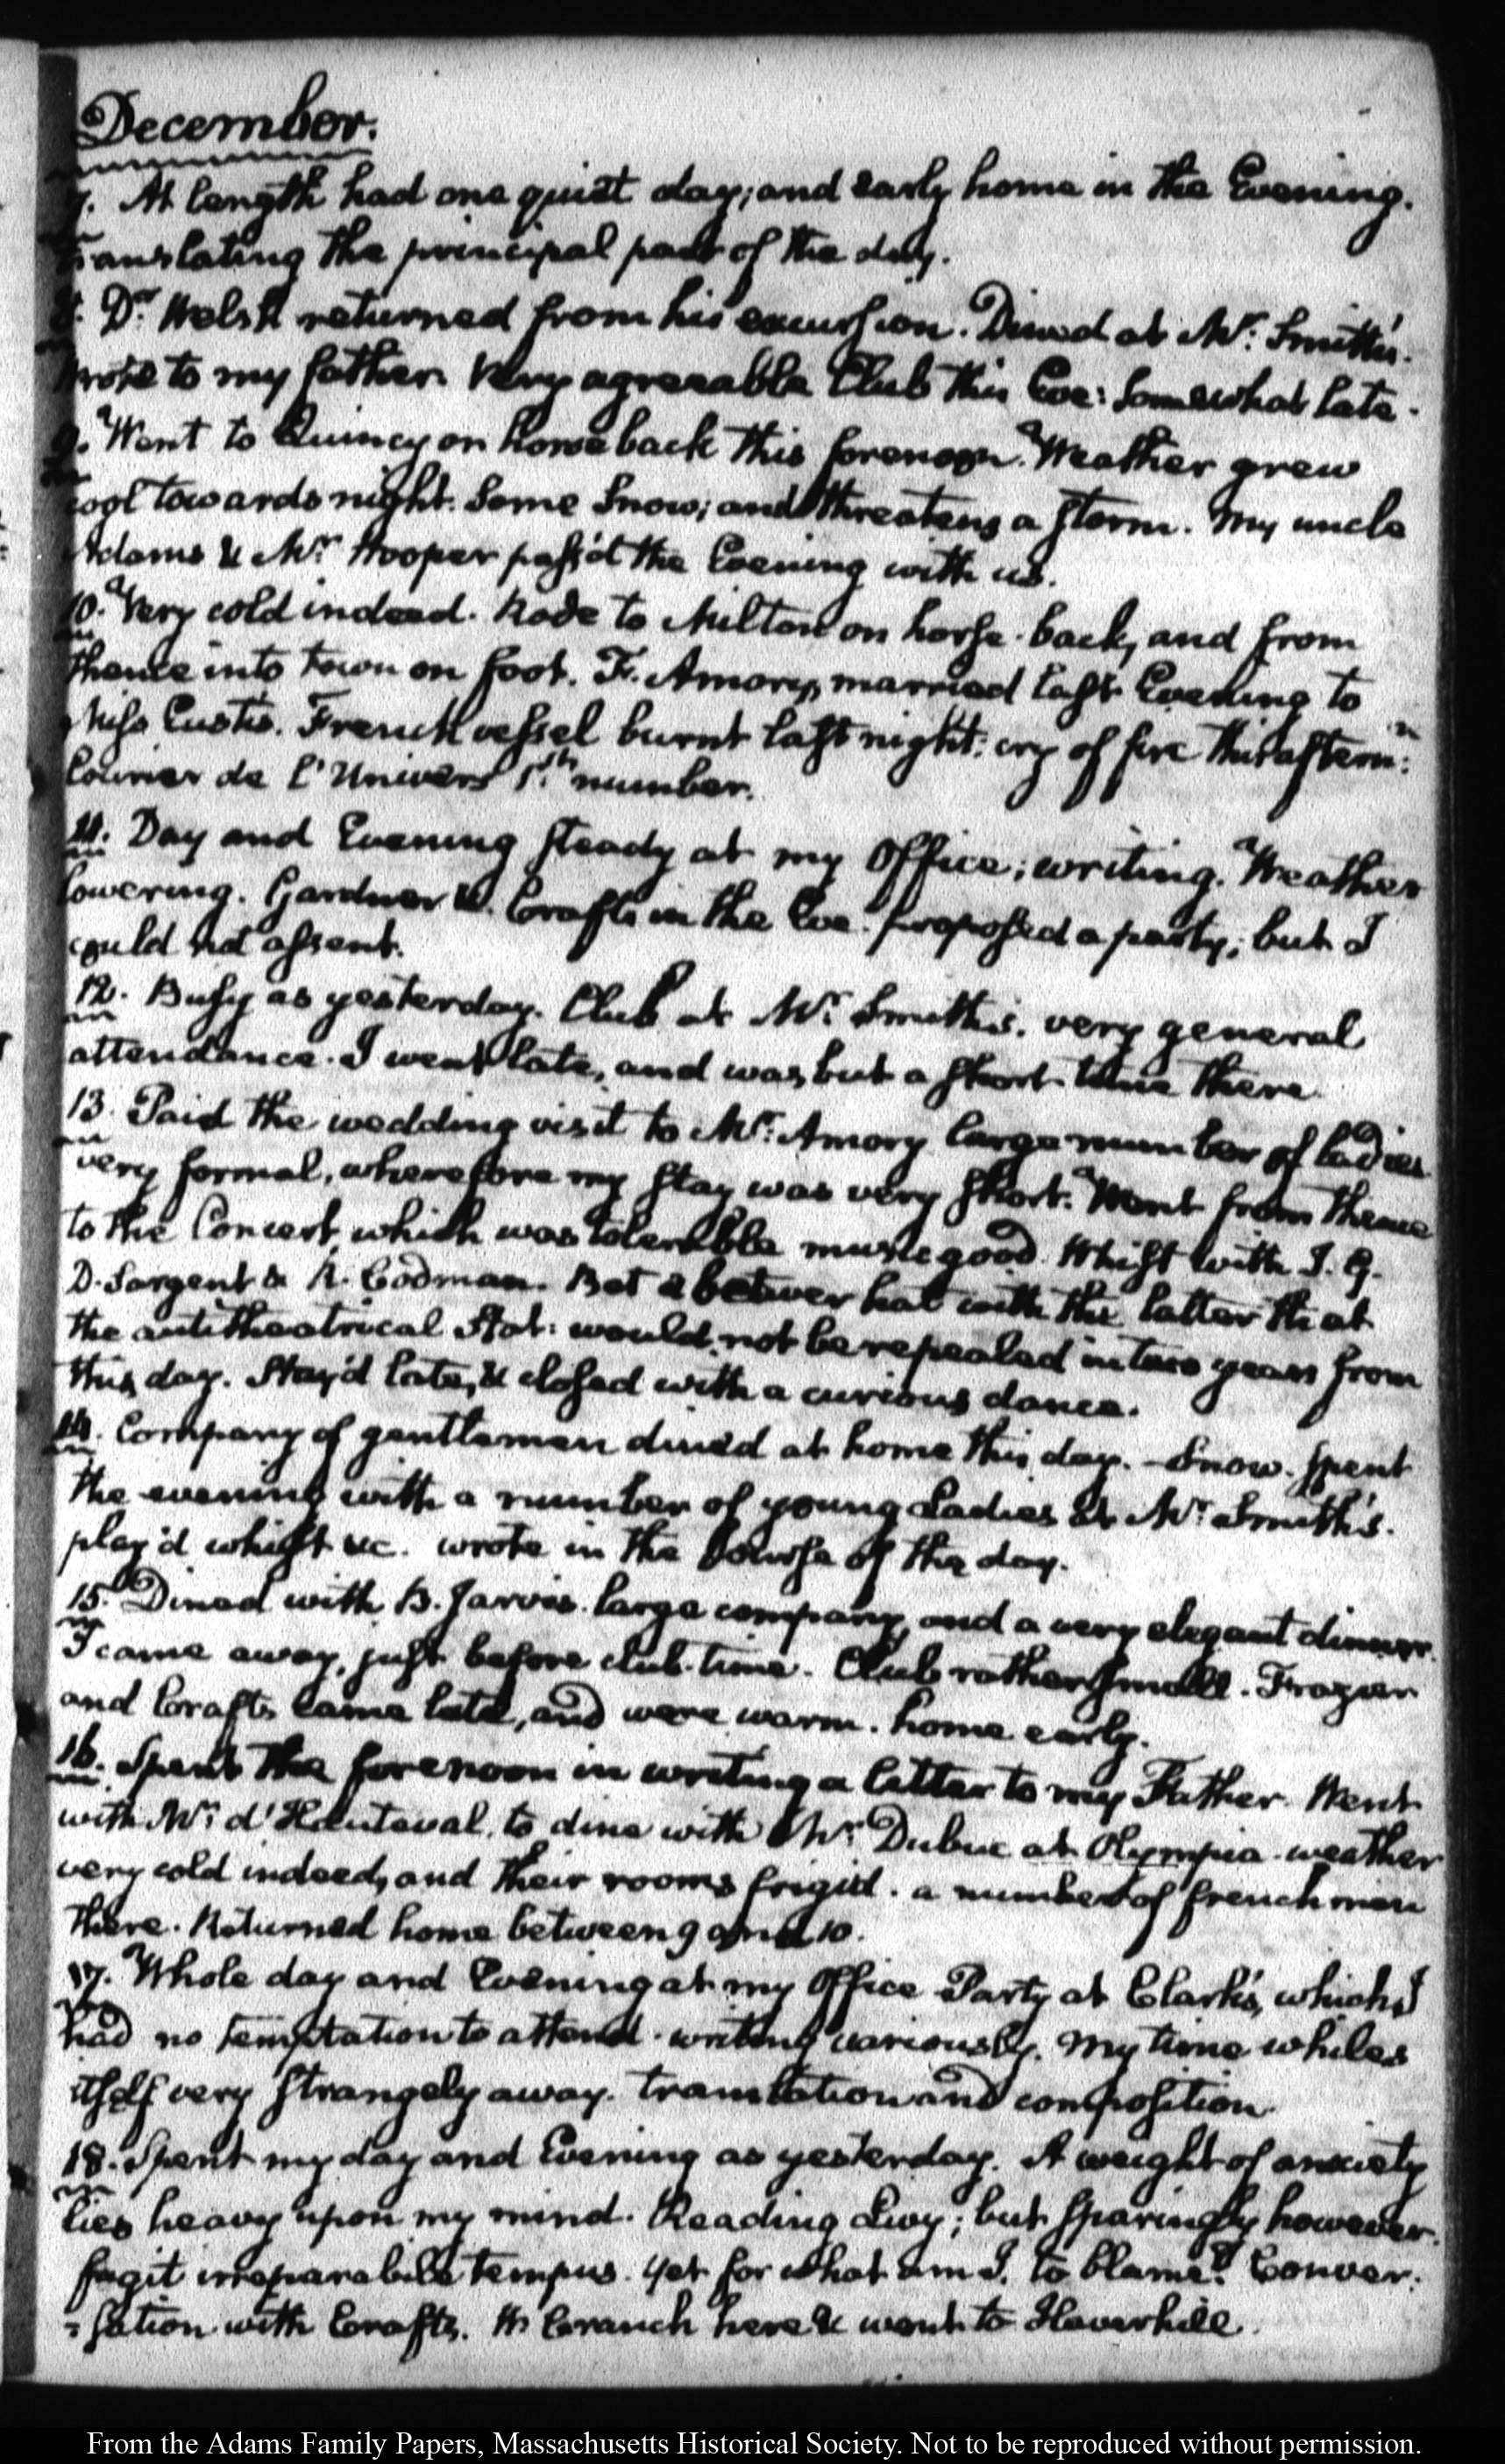 December.
7. At length had one quiet day; and early home in the Evening.
Translating the principal part of the day.
8. Dr. Welsh returned from his excursion. Dined at Mr. Smith's.
Wrote to my father. Very agreeable Club this Eve: somewhat late.
9. Went to Quincy on horseback this forenoon. Weather grew
cool towards night. Some snow; and threatens a storm. My uncle
Adams & Mr. Hooper pass'd the Evening with us.
10. Very cold indeed. Rode to Milton on horse-back, and from
thence into town on foot. F. Amory, married last Evening to
Miss Custis. French vessel burnt last night: cry of fire this aftern:n
Courier de l'Univers 1.st number.
11. Day and Evening steady at my Office; writing. Weather
lowering. Gardner & Crafts in the Eve. proposed a party; but I
could not assent.
12. Busy as yesterday. Club at Mr. Smith's. very general
attendance. I went late, and was but a short time there.
13. Paid the wedding visit to Mr. Amory large number of ladies
very formal, wherefore my stay was very short. Went from thence
to the Concert, which was tolerable music good. Whist with I. G.
D. Sargent & R. Codman. Bet a beaver hat with the latter that
the antitheatrical Stat: would not be repealed in two years from
this day. Stay'd late, & closed with a curious dance.
14. Company of gentlemen dined at home this day. Snow. Spent
the evening with a number of young Ladies at Mr. Smith's.
play'd whist &c. wrote in the course of the day.
15. Dined with B. Jarvis. large company, and a very elegant dinner.
I came away, just before club-time. Club rather small. Frazier
and Crafts came late, and were warm. home early.
16. Spent the forenoon in writing a letter to my Father. Went
with Mr. d'Hauteval, to dine with Mr. Dubuc at Olympia. weather
very cold indeed, and their rooms frigid. a number of frenchmen
there. Returned home between 9 and 10.
17. Whole day and Evening at my Office. Party at Clark's, which I
had no temptation to attend. writing variously. My time whiles
itself very strangely away. translation and composition.
18. Spent my day and Evening as yesterday. A weight of anxiety
lies heavy upon my mind. Reading Livy; but sparingly however.
fugit irreparabile tempus. Yet for what am I to blame? Conver:
:sation with Crafts. W. Cranch here & went to Haverhill.
From the Adams Family Papers, Massachusetts Historical Society. Not to be reproduced without permission.